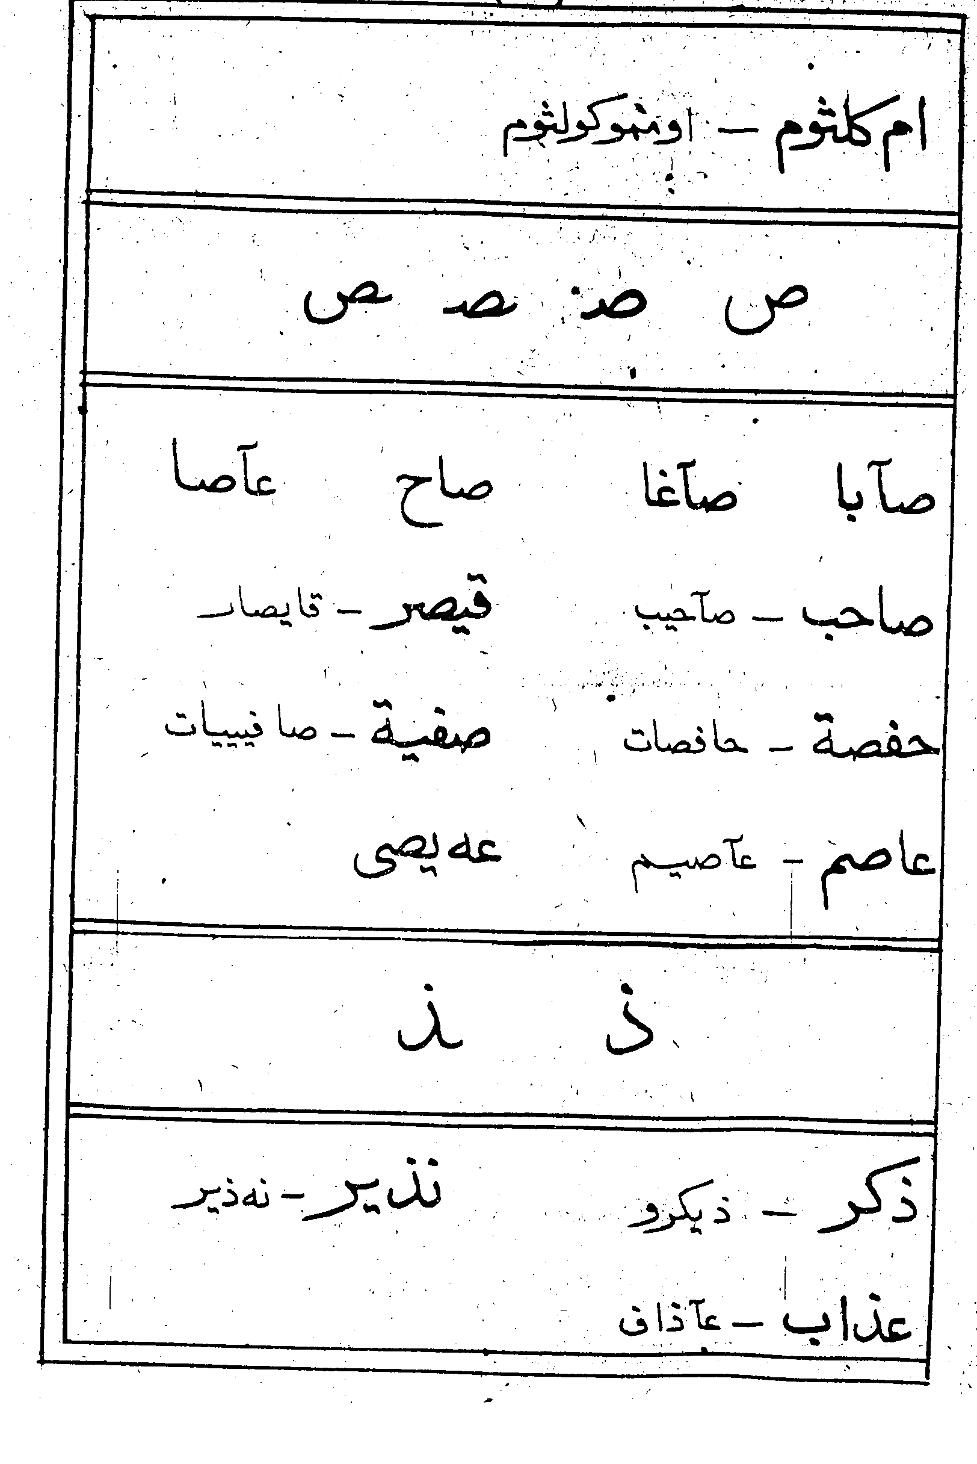 ام كلثوم – اومموكولثوم
ص صـ ـصـ ـص
صآبا صآغا صاح عآصا
صاحب – صآحيب قيصر – قايصار
حفصة – حافصات صفية – صافيييات
عاصم – عآصيم عه‌يصى
ذ ـذ
ذكر – ذيكرو نذير – نه‌ذير
عذاب – عآذاف